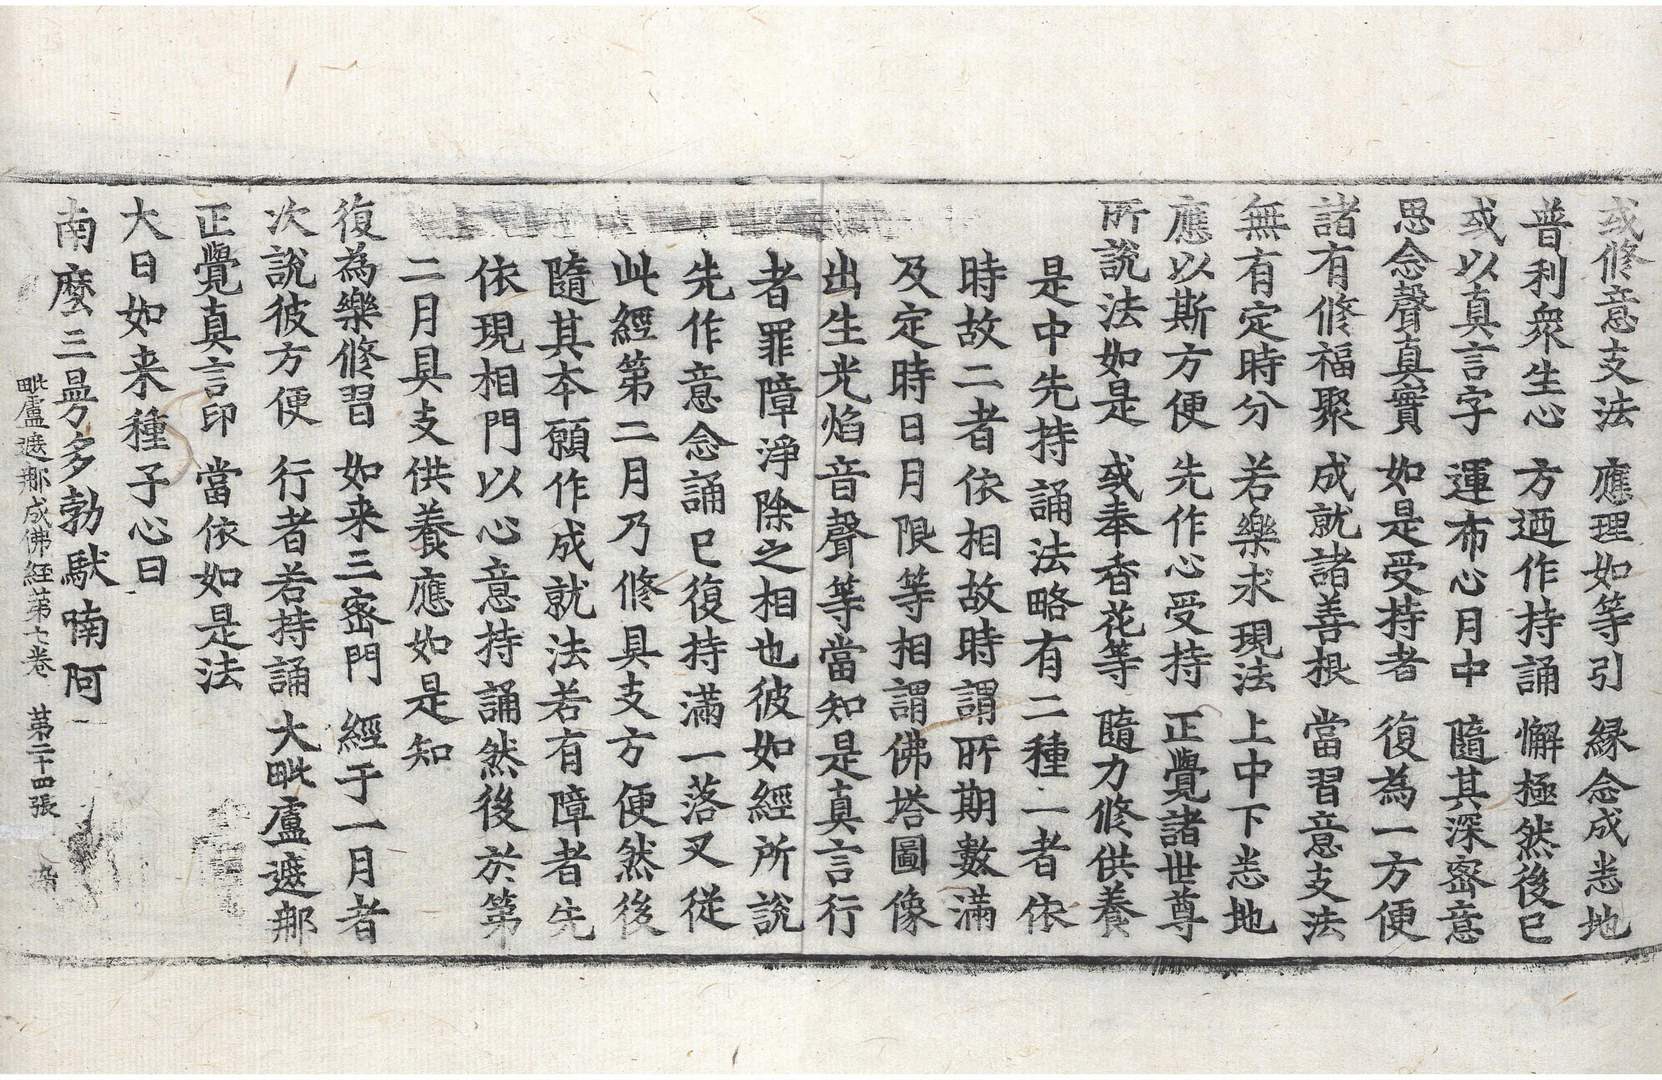 或修意支法　應理如等引　緣念成悉地
普利衆生心　方迺作持誦　懈極然後已
或以真言字　運布心月中　隨其深密意
思念聲真實　如是受持者　復為一方便
諸有修福聚　成就諸善根　當習意支法
無有定時分　若樂求現法　上中下悉地
應以斯方便　先作心受持　正覺諸世尊
所說法如是　或奉香花等　隨力修供養
是中先持誦法略有二種一者依
時故二者依相故時謂所期數滿
及定時日月限等相謂佛塔圖像
出生光焰音聲等當知是真言行
者罪障淨除之相也彼如經所說
先作意念誦已復持滿一落叉從
此經第二月乃修具支方便然後
隨其本願作成就法若有障者先
依現相門以心意持誦然後於第
二月具支供養應如是知
復為樂修習　如来三密門　經于一月者
次說彼方便　行者若持誦　大毗盧遮那
正覺真言印　當依如是法
大日如来種子心曰
南麼三曼多勃馱喃阿
毗盧遮那成佛経第七卷　第二十四張